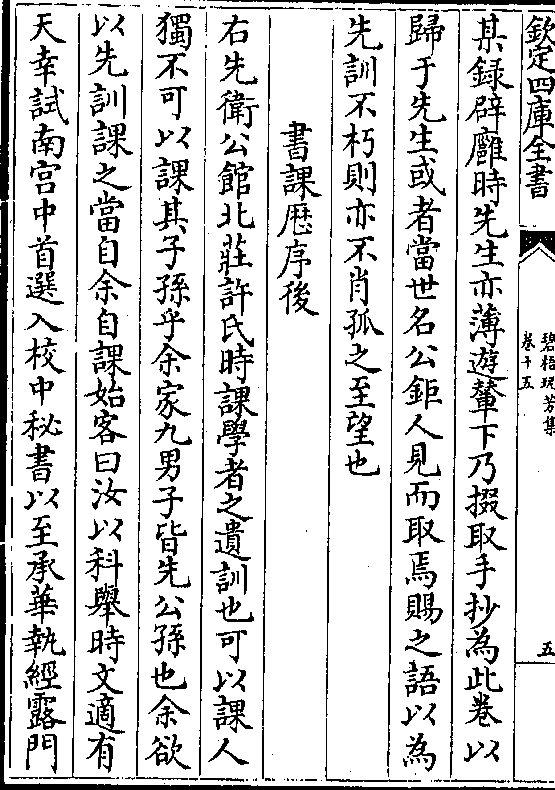 欽定四庫全書
碧梧玩芳集
卷十五
五
某録辟廱時先生亦薄遊輦下乃掇取手抄為此卷以
歸于先生或者當世名公鉅人見而取焉賜之語以為
先訓不朽則亦不肖孤之至望也
書課厯序後
右先衛公館北莊許氏時課學者之遺訓也可以課人
獨不可以課其子孫乎余家九男子皆先公孫也余欲
以先訓課之當自余自課始客曰汝以科舉時文適有
天幸試南宮中首選入校中秘書以至承華執經露門